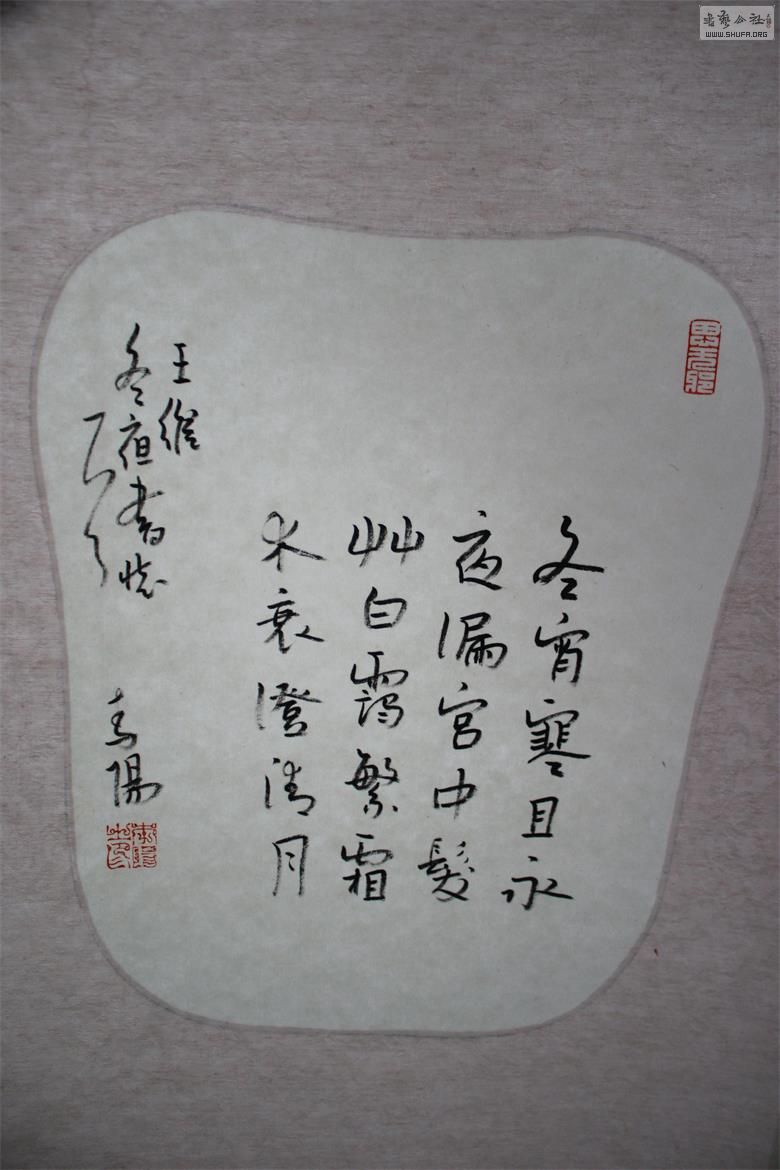 書藝公社
WWW.SHUFA.ORG
思无邪
冬宵寒且永
夜漏宮中髮
艸白靄繁霜
木衰澄清月
王維
冬夜書懷
陽